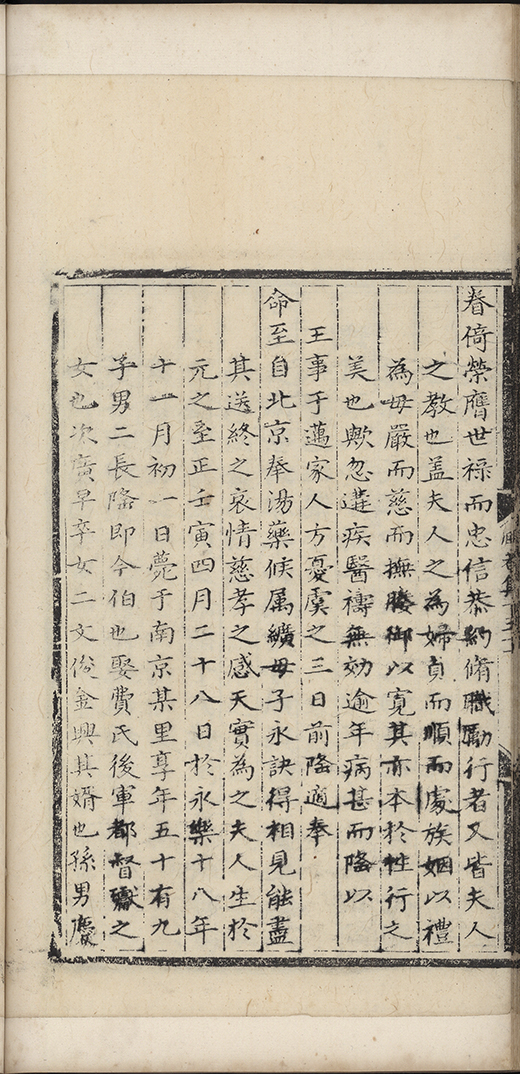 眷倚榮膺世祿而忠信恭約脩職勵行者又皆夫人
之教也盖夫人之為婦貞而順而處族姻以禮
為母嚴而慈而撫媵御以寬其亦本於性行之
美也歟忽遘疾醫禱無効逾年病甚而隆以
王事于邁家人方憂虞之三日前隆適奉
命至自北京奉湯藥候属纊母子永訣得相見能盡
其送終之哀情慈孝之感天實為之夫人生於
元之至正壬寅四月二十八日於永樂十八年
十一月初一日薨于南京某里享年五十有九
子男二長隆即今伯也娶費氏後軍都督瓛之
女也次廣早卒女二文俊金興其婿也孫男慶